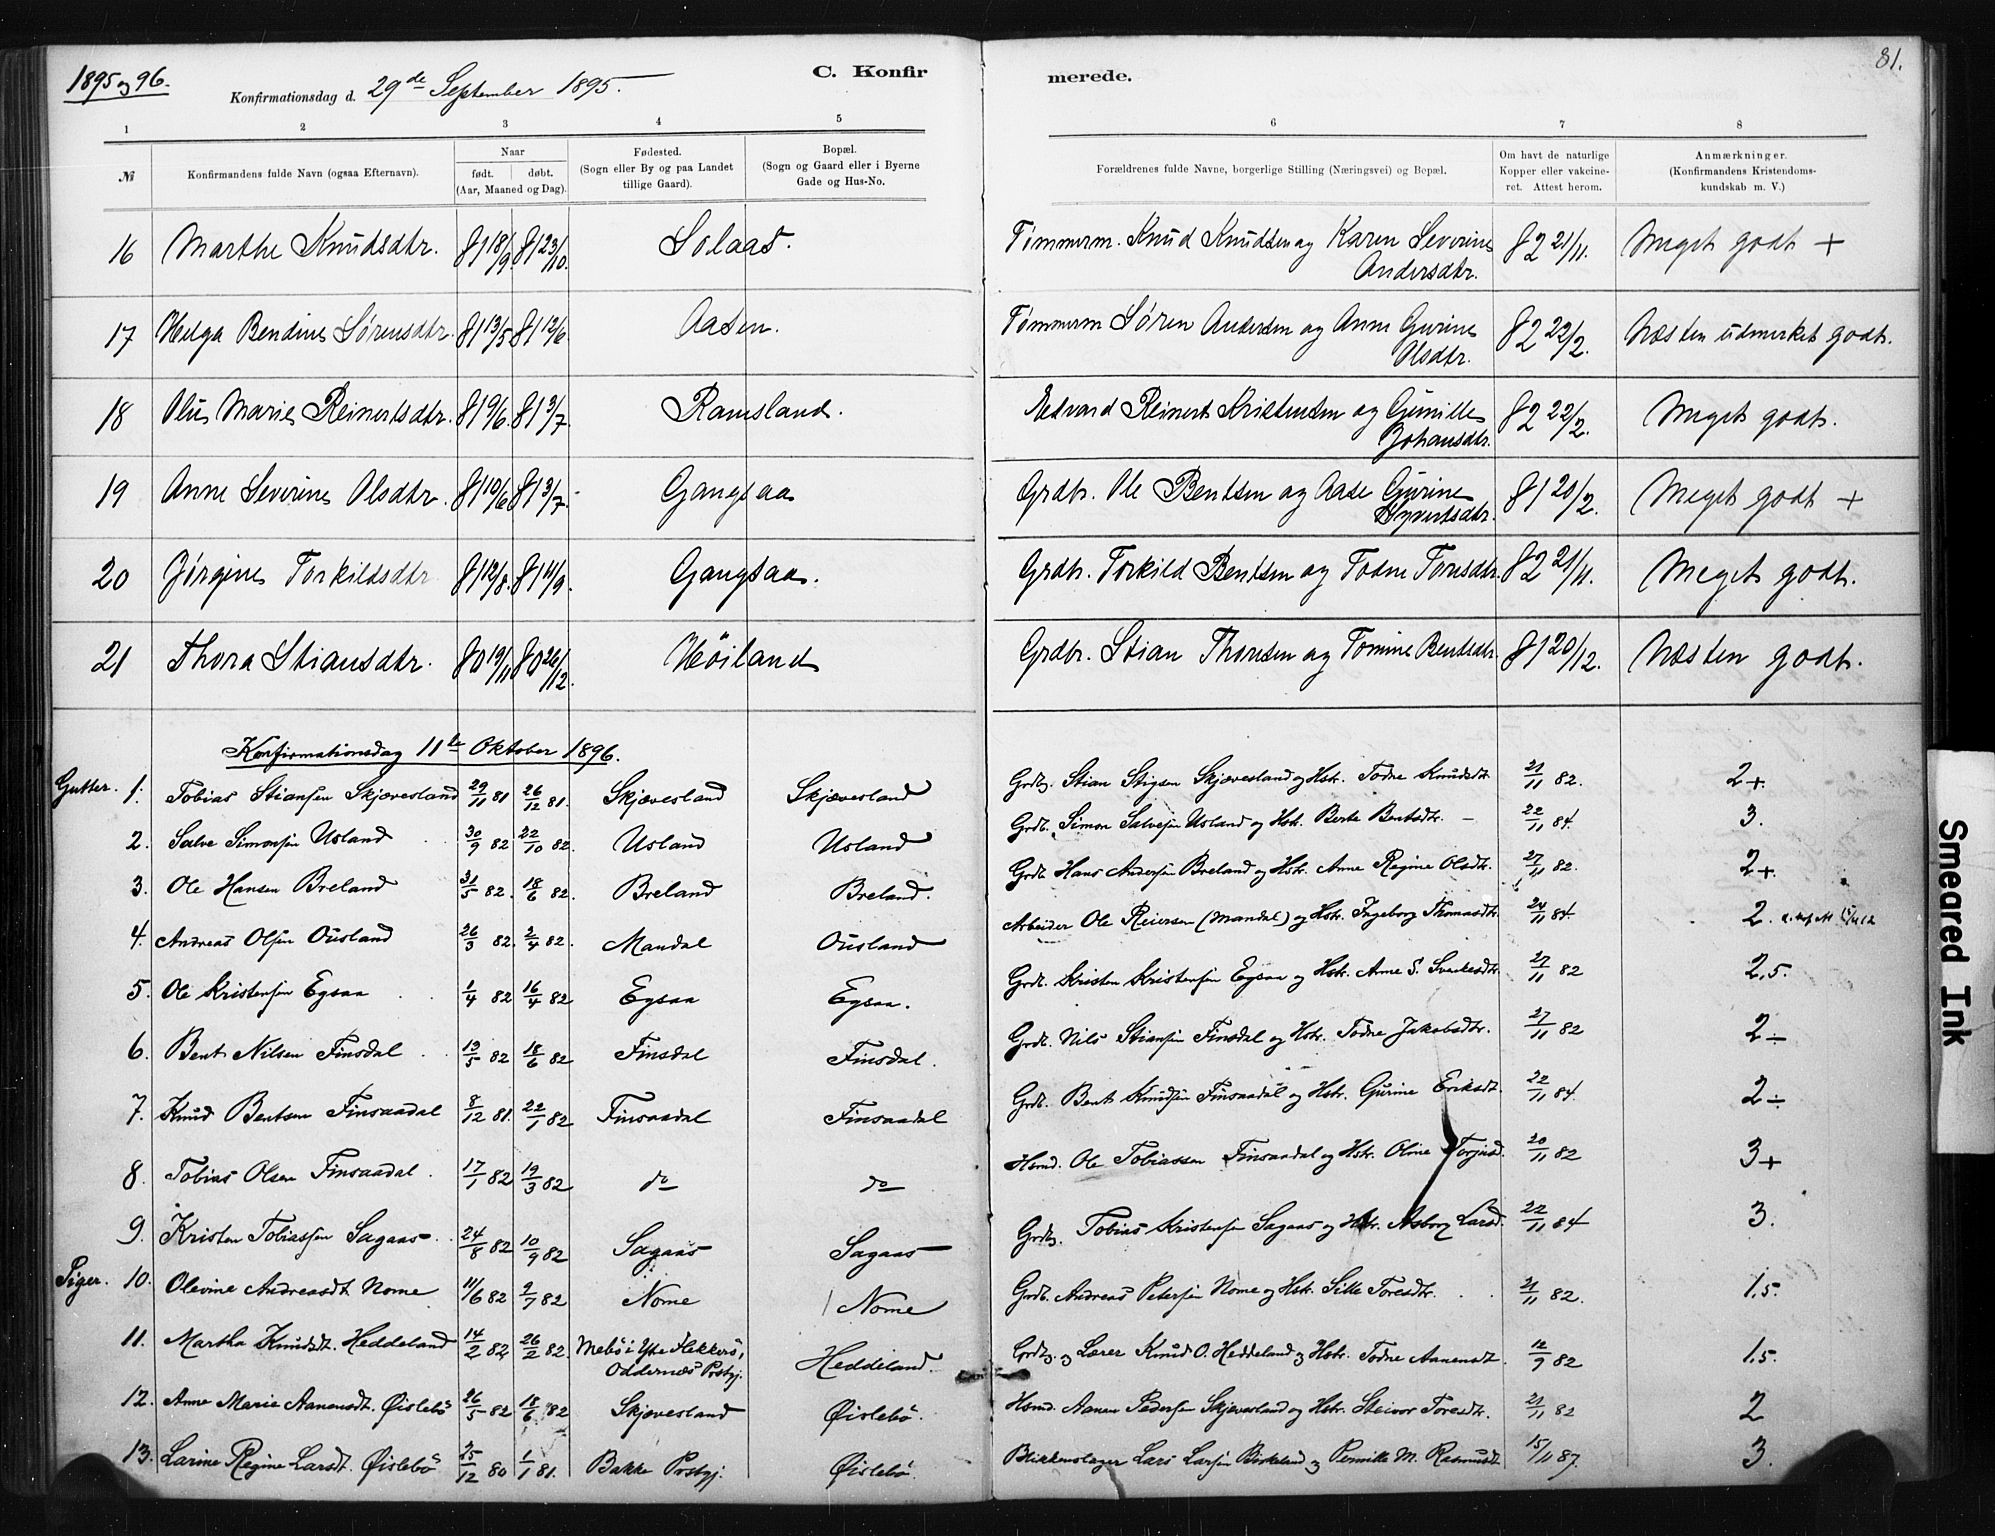 1895 og 96.
Konfirmationsdag d. 29de September 1895.
C. Konfir
merede.
81.
1 2 3 4 5 6 7 8
№
Konfirmandens fulde Navn (ogsaa Efternavn).
Naar
født. døbt.
(Aar, Maaned og Dag).
Fødested.
(Sogn eller By og paa Landet
tillige Gaard).
Bopæl.
(Sogn og Gaard eller i Byerne
Gade og Hus-No.
Forældrenes fulde Navne, borgerlige Stilling (Næringsvei) og Bopæl.
Om havt de naturlige
Kopper eller vakcine-
ret. Attest herom.
Anmærkninger.
(Konfirmandens Kristendoms-
kundskab m. V.)
16 Marthe Knudsdtr. 81 18/9. 81 23/10. Solaas. Tømmerm. Knud Knudsen og Karen Severine 82 21/11. Meget godt +
Andersdtr.
17 Helga Bendine Sørensdtr. 81 13/5 81 12/6. Aasen. Tømmerm Søren Andersen og Anne Gurine 82 22/2. Næsten udmerket godt.
Olsdtr.
18 Olu Marie Reinertsdtr. 81 9/6. 81 3/7. Ramsland. Edvard Reinert Kristensen og Gunille 82 22/2. Meget godt.
Johansdtr.
19 Anne Severine Olsdtr. 81 10/6 81 3/7. Gangsaa Grdbr. Ole Bentsen og Aase Gurine 81 20/2. Meget godt +
20 Jørgine Torkildsdtr 81 12/8. 81 14/9. Gangsaa. Grdbr. Torkild Bentsen og Todne Tomsdtr. 82 21/11. Meget godt.
21 Thora Stiansdtr. 80 19/11 80 26/12. Høiland Grdbr. Stian Thomsen og Tomine Bentsdtr. 81 20/12. Næsten godt.
Konfirmationsdag 11te Oktober 1896.
Gutter. 1. Tobias Stiansen Skjævesland 29/11 81 26/12 81. Skjævesland Skjævesland Grdbr. Stian Stigsen Skjævesland og Hstr. Todne Knudsdtr 21/11 82. 2+.
2. Salve Simonsen Usland 30/9 82 22/10 82. Usland Usland Grdb. Simon Salvesen Usland og Hstr. Berte Bentsdtr. 22/11 84. 3.
3. Ole Hansen Breland 31/5 82. 18/6 82. Breland Breland. Grdb. Hans Andersen Breland og Hstr. Anne Regine Olsdtr. 27/11 82. 2+.
4. Andreas Olsen Ousland 26/3 82. 2/4 82. Mandal Ousland Arbeider Ole Reiersen (Mandal) og Hstr. Ingeborg Thomasdtr. 24/11 84. 2.
5. Ole Kristensen Egsaa 1/4 82 16/4 82 Egsaa Egsaa. Grdb. Kristen Kristensen Egsaa og Hstr. Anne S. 27/11 82 2.5.
6. Bent Nilsen Finsdal 13/5 82 18/6 82 Finsdal Finsdal. Grdb. Nils Stiansen Finsdal og Hstr. Todne Jakobsdtr. 27/11 82 2÷
7. Knud Bentsen Finsaadal 8/12 81. 22/1 82 Finsaadal Finsaadal Grdb. Bent Knudsen Finsaadal og Hstr. Gurine Eriksdt. 22/11 84. 2÷
8. Tobias Olsen Finsaadal 17/1 82 19/3 82 do do Hsmd. Ole Tobiassen Finsaadal og Hstr. Oline Torjusd. 20/11 82 3+
9. Kristen Tobiassen Sagaas 24/8 82 10/9 82 Sagaas Sagaas Grdb. Tobias Kristensen Sagaas og Hstr. Asborg Larsd. 22/11 84 3.
Piger. 10. Olevine Andreasdt. Nome 11/6 82 2/7 82 Nome Nome Grdb. Andreas Petersen Nome og Hstr. Sille Toresdtr. 21/11 82. 1.5.
11. Martha Knudsdt. Heddeland 14/2 82 26/2 82. Mebø i Yte Flekkerø, Heddeland. Grdb. og Lærer Knud O. Heddeland og Hstr. Todne Aanensdt. 12/9 82 1.5.
Oddernæs Prstgj.
12. Anne Marie Aanensdt. Øislebø 26/5 82 18/6 82 Skjævesland Øislebø. Hsmd. Aanen Pedersen Skjævesland og Hstr. Steivor Toresdtr. 21/11 82 2
13. Larine Regine Larsdt. Øislebø 25/12 80 1/1 81. Bakke Prstgj. Øislebø. Blikkenslager Lars Larsen Birkeland og Pernille M. Rasmusdt. 15/11 87. 3.
Smeared Ink